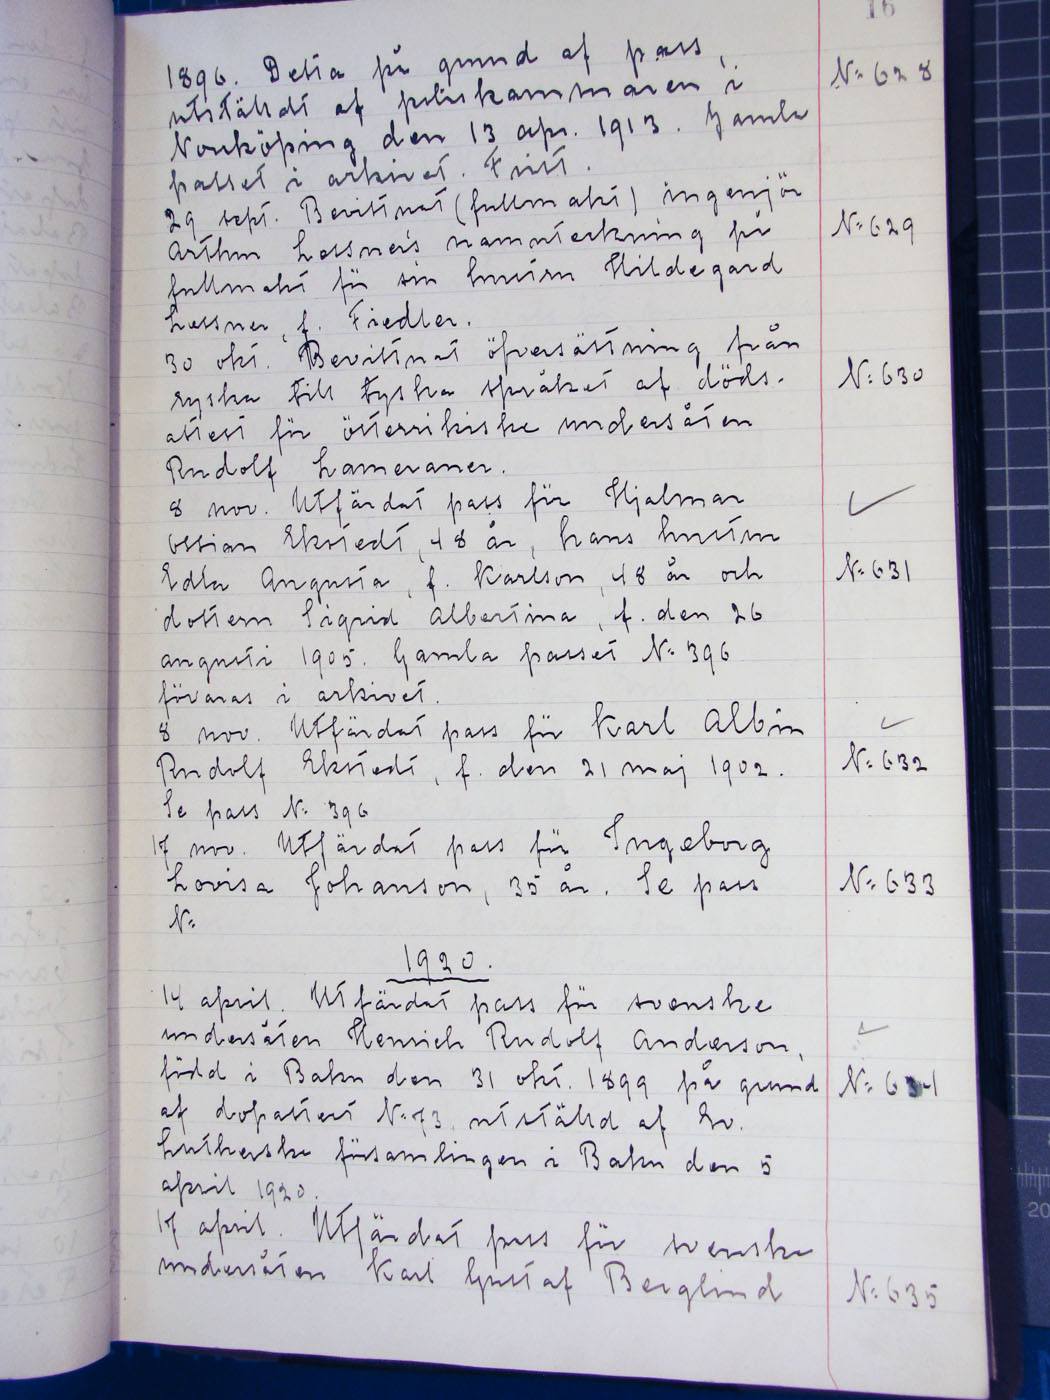 16
1896. Detta på grund af pass,
N: 628
utställdt af poliskammaren i
Norrköping den 13 apr. 1913. Gamla
passet i arkivet. Fritt.
29 sept. Bevittnat (fullmakt) ingenjör
N: 629
Arthur Lessners namnteckning på
fullmakt för sin hustru Hildegard
Lessner, f. Fiedler.
30 okt. Bevittnat öfversättning från
N: 630
ryska till tyska språket af döds-
attest för österrikiske undersåten
Rudolf Lameraner.
8 nov. Utfärdat pass för Hjalmar
Ossian Ekstedt, 48 år, hans hustru
N: 631
Edla Augusta, f. Karlson, 48 år och
dottern Sigrid Albertina, f. den 26
augusti 1905. Gamla passet N: 396
förvaras i arkivet.
8 nov. Utfärdat pass för Karl Albin
N: 632
Rudolf Ekstedt, f. den 21 maj 1902.
Se pass N: 396
17 nov. Utfärdat pass för Ingeborg
Lovisa Johanson, 35 år. Se pass
N: 633
N:
1920.
14 april. Utfärdat pass för svenske
undersåten Henrich Rudolf Anderson,
född i Baku den 31 okt. 1899 på grund
N: 634
af dopattest N: 73, utställd af Ev.
Lutherske församlingen i Baku den 5
april 1920.
17 april. Utfärdat pass för svenske
undersåten Karl Gustaf Berglind
N: 635